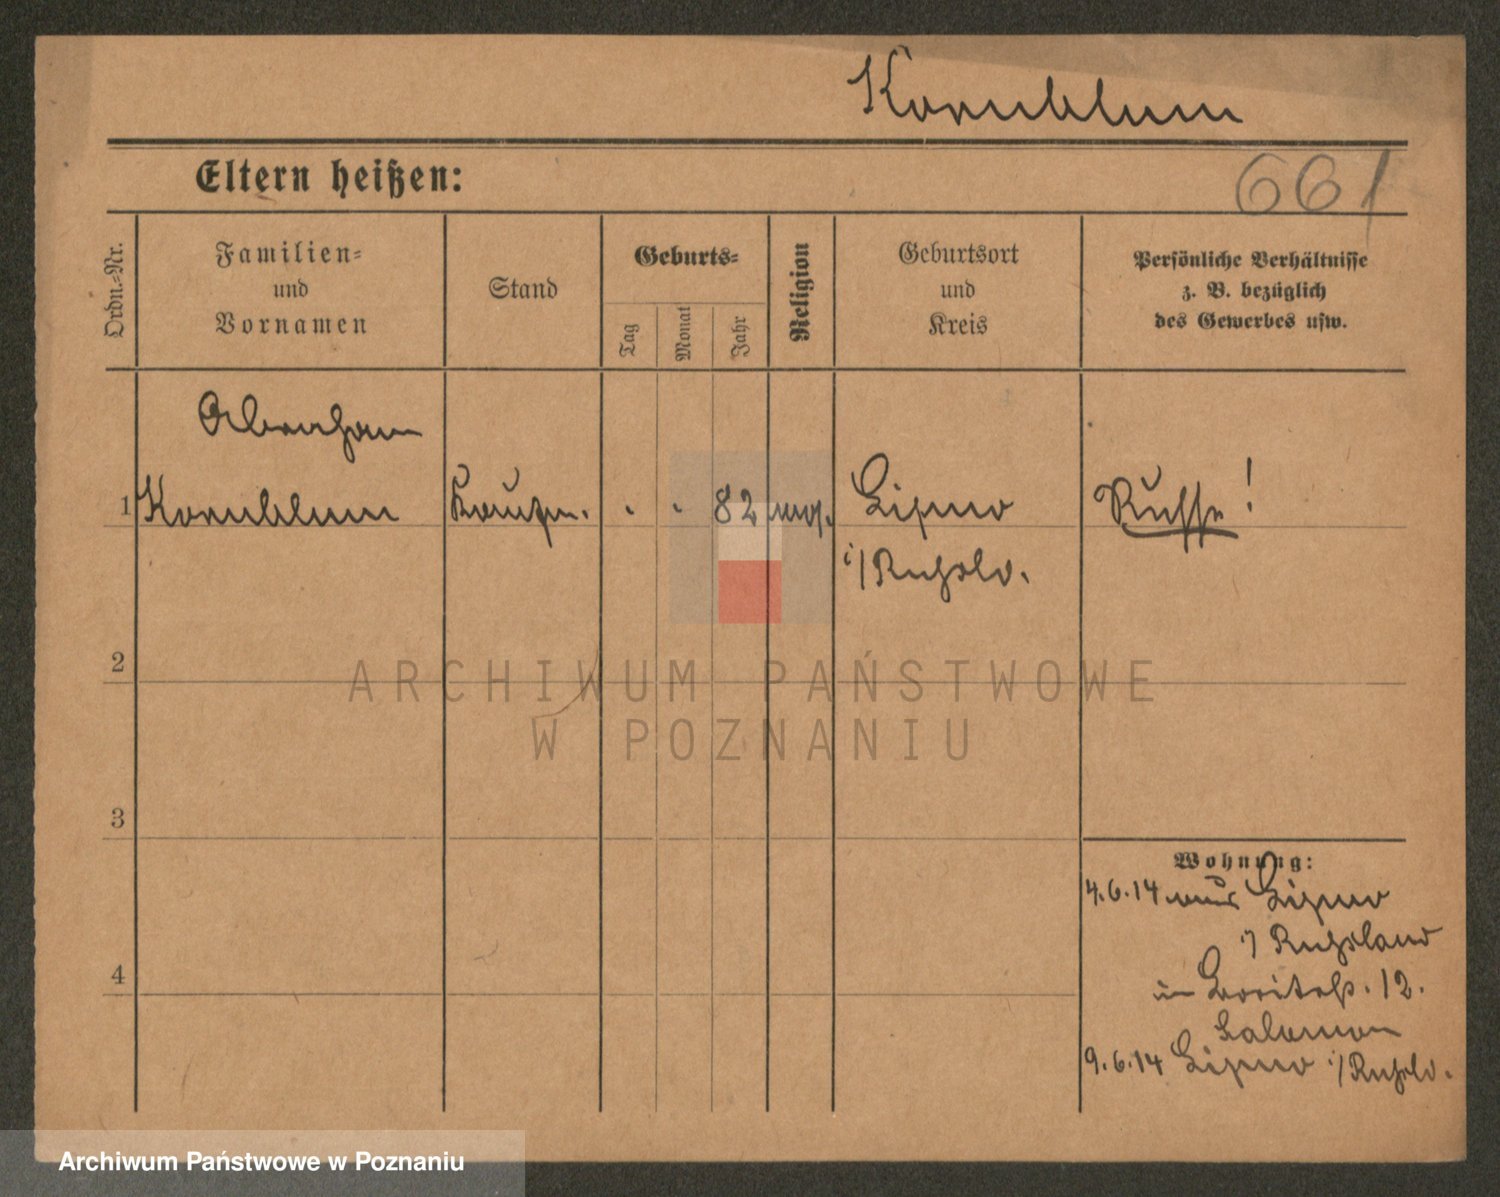 Kornblum
Eltern heißen:
661
Ordn.-Nr.
Familien-
und
Vornamen
Stand
Geburts-
Tag
Monat
Jahr
Religion
Geburtsort
und
Kreis
Persönliche Verhältnisse
z. B. bezüglich
des Gewerbes usw.
Abraham
1 Kornblum Kaufm. 82 mos. Lipno Russe!
i/Rußld.
2
3
4
Wohnung:
4.6.14 aus Lipno
i/ Russland
in 12.
Salomon
9.6.14 Lipno i/Rußld.
ARCHIWUM PAŃSTWOWE
W POZNANIU
Archiwum Państwowe w Poznaniu